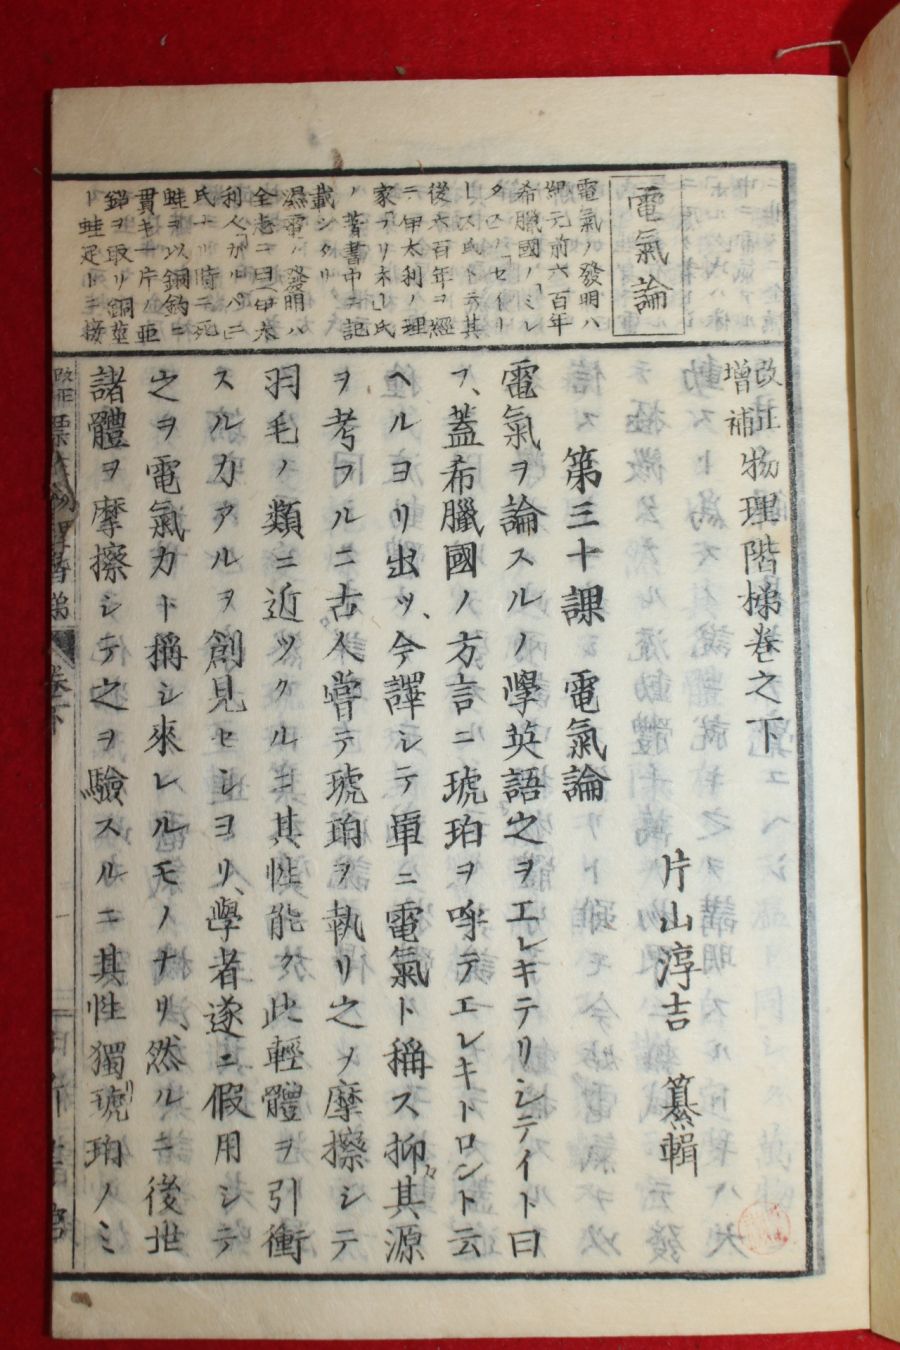 改正
增補
物理階梯卷之下
片山淳吉 纂輯
第三十課 電氣論
電氣ヲ論スルノ學英語之ヲエレキテリシテイト曰
フ、蓋希臘國ノ方言ニ琥珀ヲ呼テエレキトロント云
ヘルヨリ出ツ、今譯シテ單ニ電氣ト稱ス抑其源
ヲ考フルニ古人嘗テ琥珀ヲ執リ之ヲ摩擦シテ
羽毛ノ類ニ近ツクルニ其性能ク此輕體ヲ引衝
スルカアルヲ創見セシヨリ、學者遂ニ假用シテ
之ヲ電氣力ト稱シ來レルモノナリ、然ルニ後世
諸體ヲ摩擦シテ之ヲ驗スルニ其性獨リ琥珀ノミ
電氣論
電氣ノ發明ハ
紀元前六百年
希臘國ノ「ミレ
氏ト云其
後六百年ヲ經
家
ノ著書中ニ記
載シタリ
濕電ノ發明ハ
氏ナリ時ニ死
蛙ヲ以銅鈎ニ
貫キ一片ノ亞
鉛ヲ取リ銅莖
ト蛙足トニ接
卷下